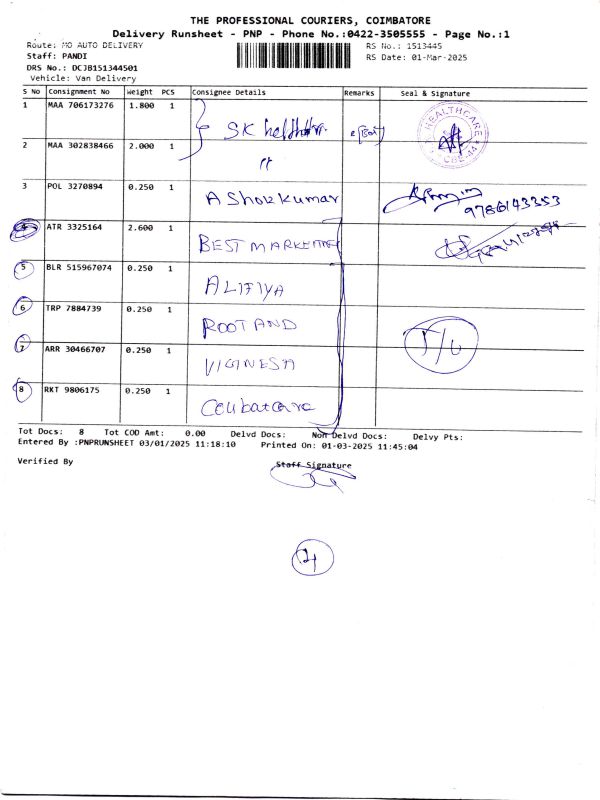 THE PROFESSIONAL COURIERS, COIMBATORE
Delivery Runsheet - PNP - Phone No.:0422-3505555 - Page No.:1
Route: MO AUTO DELIVERY RS No.: 1513445
Staff: PANDI RS Date: 01-Mar-2025
DRS No.: DCJB151344501
Vehicle: Van Delivery
S No Consignment No Weight PCS Consignee Details Remarks Seal & Signature
1 MAA 706173276 1.800 1 SK
HEALTHCARE
2 MAA 302838466 2.000 1 "
3 POL 3270894 0.250 1 AShokkumar 9786143353
4 ATR 3325164 2.600 1 BEST MARKETING
5 BLR 515967074 0.250 1 ALIFIYA
6 TRP 7884739 0.250 1 ROOT AND
7 ARR 30466707 0.250 1 VIGINESH
8 RKT 9806175 0.250 1
Tot Docs: 8 Tot COD Amt: 0.00 Delvd Docs: Non Delvd Docs: Delvy Pts:
Entered By :PNPRUNSHEET 03/01/2025 11:18:10 Printed On: 01-03-2025 11:45:04
Verified By Staff Signature